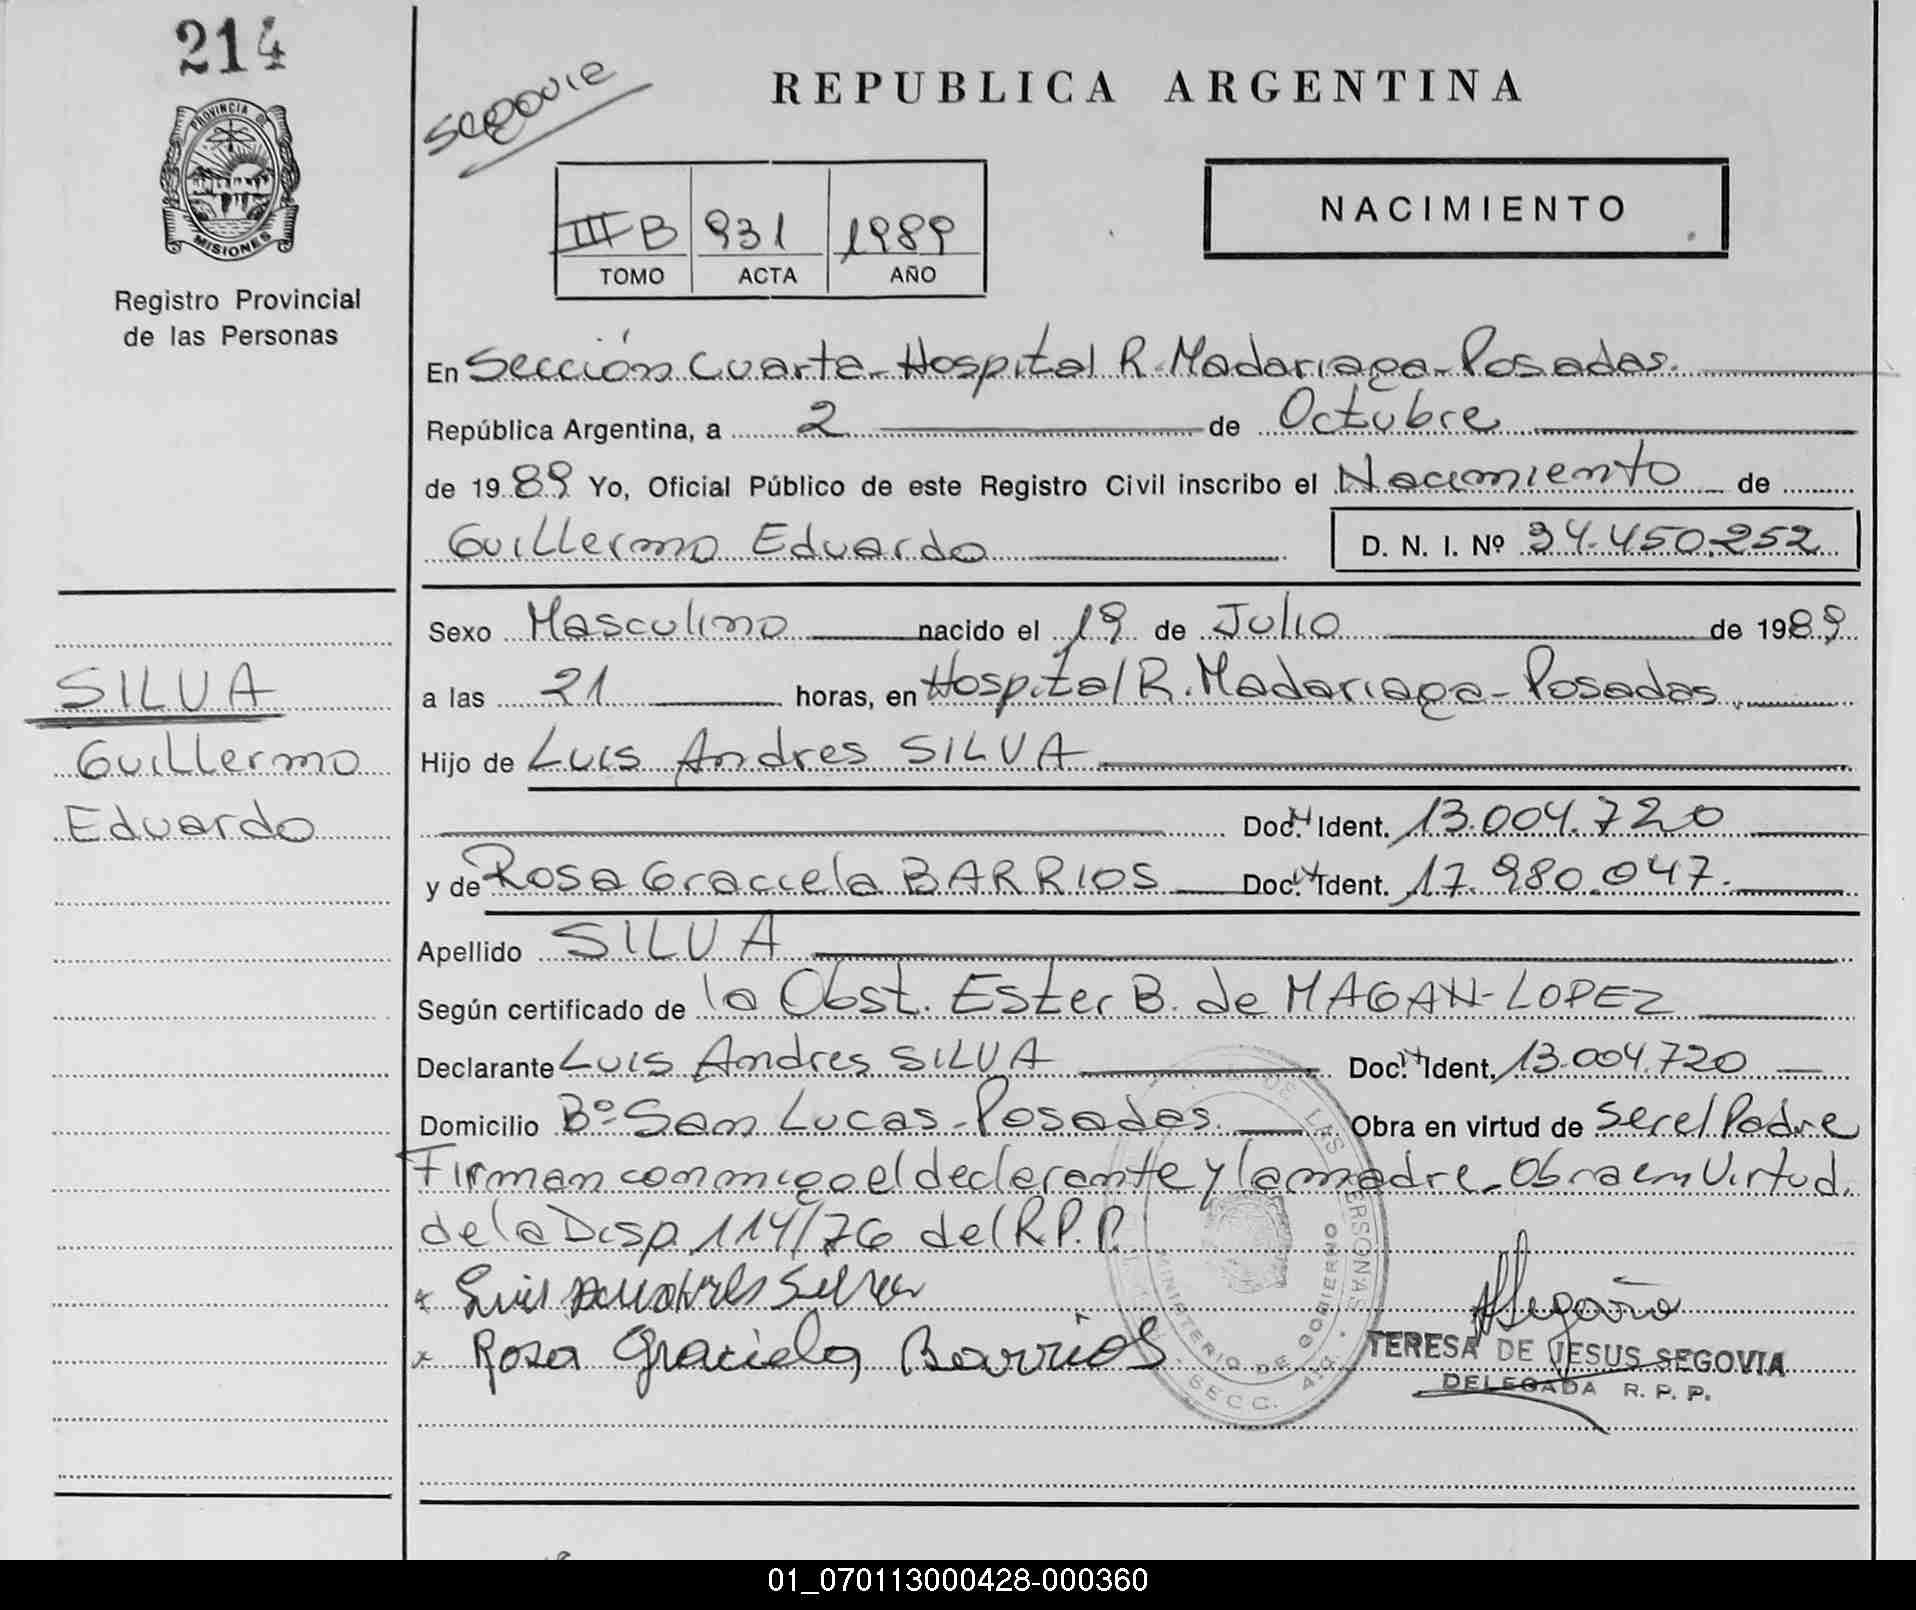 214
PROVINCIA DE
MISIONES
Registro Provincial
de las Personas
Segovie
REPUBLICA ARGENTINA
III B 931 1989
TOMO ACTA AÑO
NACIMIENTO
En Sección Cuarta - Hospital R. Madariaga - Posadas.
República Argentina, a 2 de Octubre
de 1989 Yo, Oficial Público de este Registro Civil inscribo el Nacimiento de
Guillermo Eduardo D. N. I. Nº 34.450.252
Sexo Masculino nacido el 19 de Julio de 1989
a las 21 horas, en Hospital R. Madariaga - Posadas.
Hijo de Luis Andres SILVA
Doc. N Ident. 13.004.720
y de Rosa Graciela BARRIOS Doc. N Ident. 17.980.047.
Apellido SILVA
Según certificado de la Obst. Ester B. de MAGAN-LOPEZ
Declarante Luis Andres SILVA Doc. N Ident. 13.004.720
Domicilio Bº San Lucas - Posadas. Obra en virtud de ser el Padre
Firman conmigo el declarante y la madre - Obra en Virtud.
de la Disp. 114/76 del R.P.P.
x Luis Andres Silva
x Rosa Graciela Barrios
SILVA
Guillermo
Eduardo
DE LAS PERSONAS
MINISTERIO DE GOBIERNO
SECC. 4ta.
TERESA DE JESUS SEGOVIA
DELEGADA R. P. P.
01_070113000428-000360